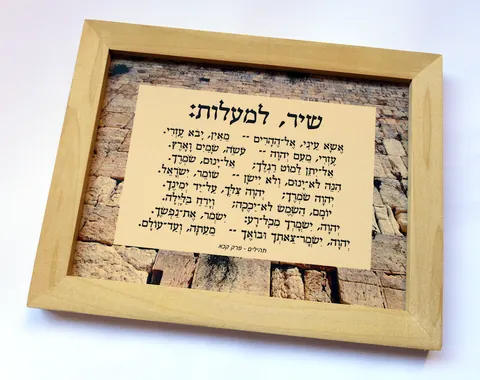 שיר, למעלות:
אשא עיני, אל-ההרים -- מאין, יבא עזרי.
עזרי, מעם יהוה -- עשה, שמים וארץ.
אל-יתן למוט רגלך; אל-ינום, שמרך.
הנה לא-ינום, ולא יישן -- שומר, ישראל.
יהוה שמרך; יהוה צלך, על-יד ימינך.
יומם, השמש לא-יככה; וירח בלילה.
יהוה, ישמרך מכל-רע: ישמר, את-נפשך.
יהוה, ישמר-צאתך ובואך -- מעתה, ועד-עולם.
תהילים - פרק קכא